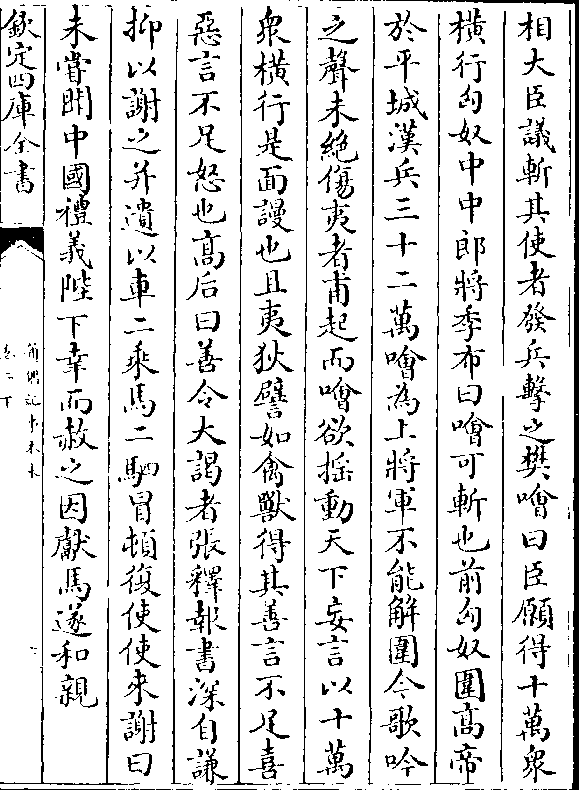 相大臣議斬其使者發兵擊之樊噲曰臣願得十萬衆
橫行匈奴中中郎將季布曰噲可斬也前匈奴圍高帝
於平城漢兵三十二萬噲為上將軍不能解圍今歌吟
之聲未絶傷夷者甫起而噲欲揺動天下妄言以十萬
衆橫行是面謾也且夷狄譬如禽獸得其善言不足喜
惡言不足怒也高后曰善令大謁者張釋報書深自謙
抑以謝之并遺以車二乘馬二駟冒頓復使使來謝曰
未嘗聞中國禮義陛下幸而赦之因獻馬遂和親
欽定四庫全書